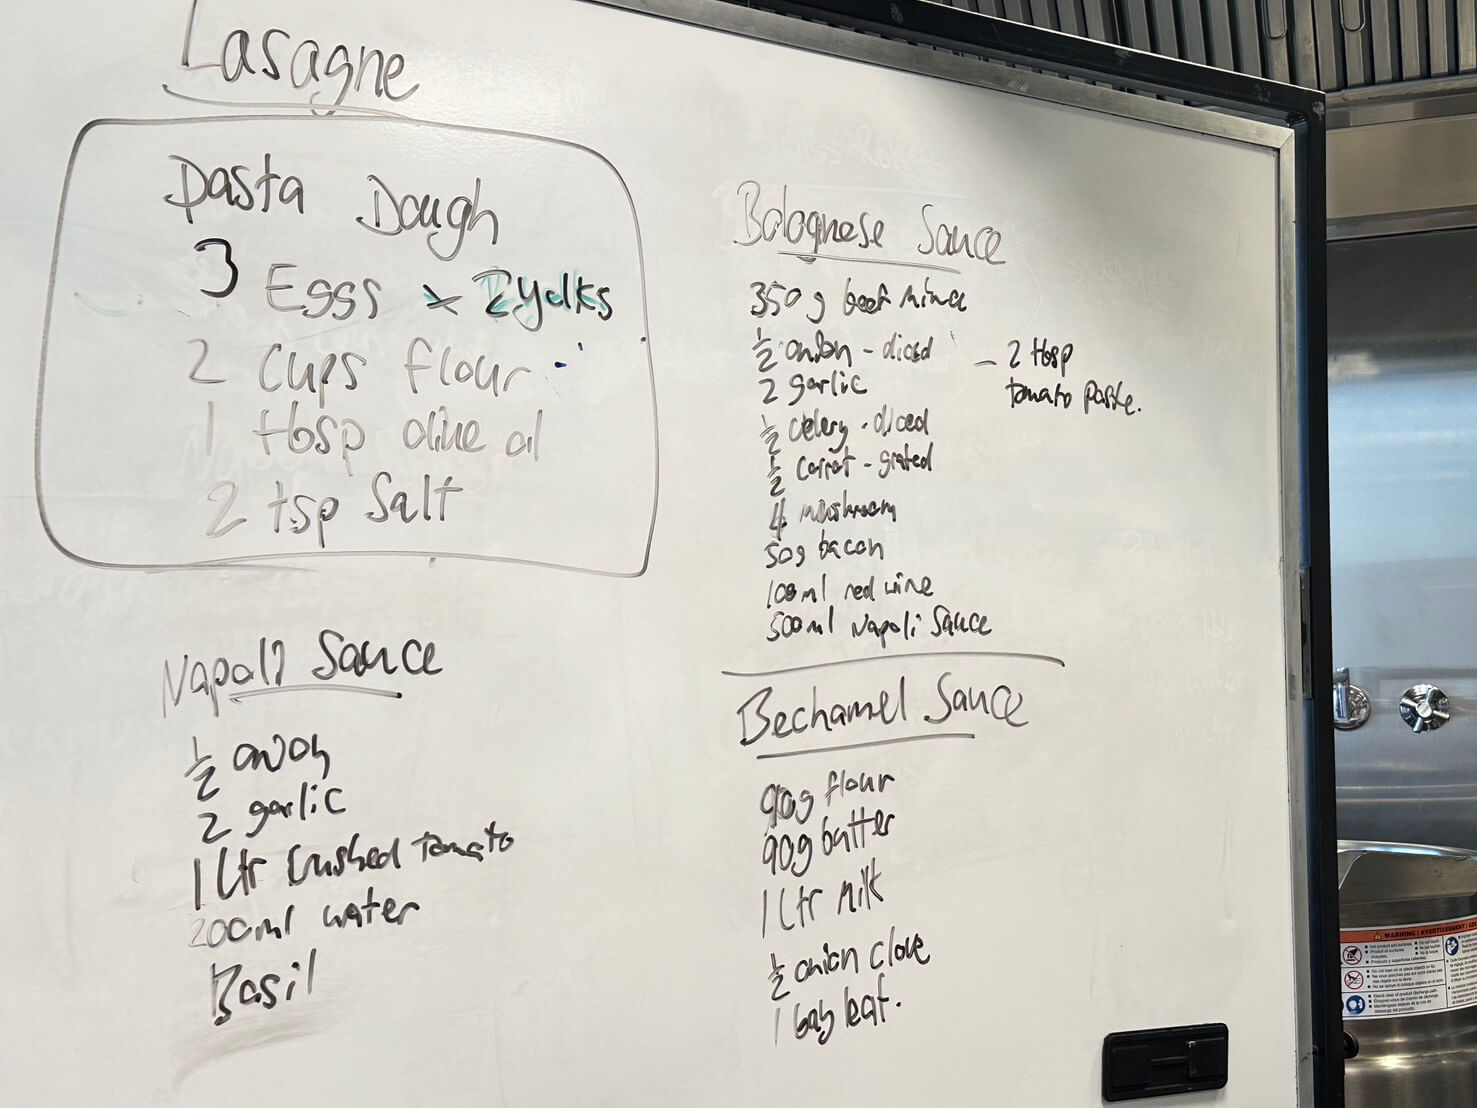 Lasagne
Pasta Dough
3 Eggs x 2 yolks
2 Cups flour
1 tbsp olive oil
2 tsp Salt
Napoli Sauce
1/2 onion
2 garlic
1 Ltr Crushed tomato
200ml water
Basil
Bolognese Sauce
350g beef mince
1/2 onion - diced
2 garlic
1/2 celery - diced
1/2 carrot - grated
4 mushroom
50g bacon
100ml red wine
500ml Napoli Sauce
- 2 tbsp
tomato paste.
Bechamel Sauce
90g flour
90g butter
1 Ltr Milk
1/2 onion clove
1 bay leaf.
WARNING / AVERTISSEMENT /